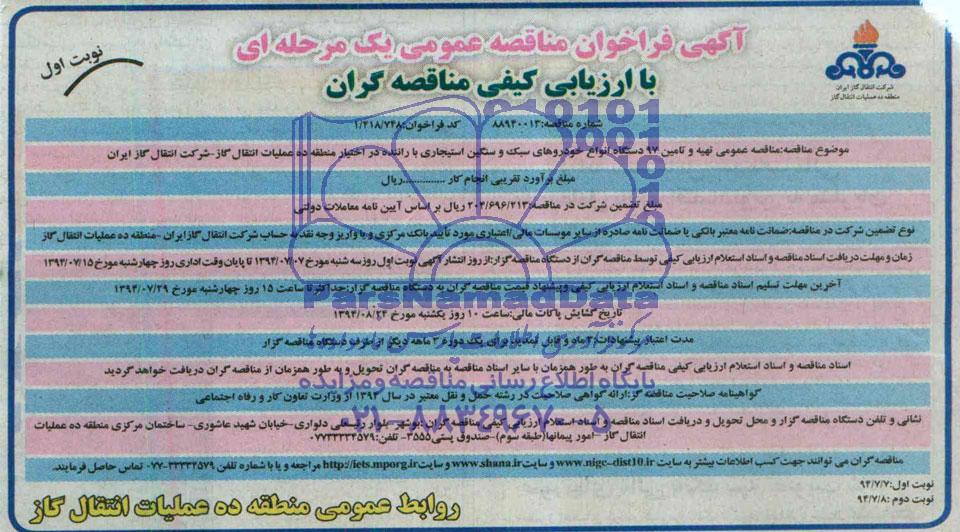 آگهی فراخوان مناقصه عمومی یک مرحله ای
با ارزیابی کیفی مناقصه گران
نوبت اول
شرکت انتقال گاز ایران
منطقه ده عملیات انتقال گاز
شماره مناقصه:۸۸۹۴۰۰۱۳ کد فراخوان:۱/۴۱۸/۷۴۸
موضوع مناقصه:مناقصه عمومی تهیه و تامین ۹۷ دستگاه انواع خودروهای سبک و سنگین استیجاری با راننده در اختیار منطقه ده عملیات انتقال گاز-شرکت انتقال گاز ایران
مبلغ برآورد تقریبی انجام کار ..............ریال
مبلغ تضمین شرکت در مناقصه:۲۰۴/۶۹۶/۲۱۳ ریال بر اساس آیین نامه معاملات دولتی
نوع تضمین شرکت در مناقصه:ضمانت نامه معتبر بانکی یا ضمانت نامه صادره از سایر موسسات مالی/اعتباری مورد تأیید بانک مرکزی و یا واریز وجه نقد به حساب شرکت انتقال گاز ایران -منطقه ده عملیات انتقال گاز
زمان و مهلت دریافت اسناد مناقصه و اسناد استعلام ارزیابی کیفی توسط مناقصه گران از دستگاه مناقصه گزار:از روز انتشار آگهی نوبت اول روز سه شنبه مورخ ۱۳۹۴/۰۷/۰۷ تا پایان وقت اداری روز چهارشنبه مورخ ۱۳۹۴/۰۷/۱۵
آخرین مهلت تسلیم اسناد مناقصه و اسناد استعلام ارزیابی کیفی و پیشنهاد قیمت مناقصه گران به دستگاه مناقصه گزار:حداکثر تا ساعت ۱۵ روز چهارشنبه مورخ ۱۳۹۴/۰۷/۲۹
تاریخ گشایش پاکات مالی:ساعت ۱۰ روز یکشنبه مورخ ۱۳۹۴/۰۸/۲۴
مدت اعتبار پیشنهادات:۳ ماه و قابل تمدید برای یک دوره ۳ ماهه دیگر از طرف دستگاه مناقصه گزار
اسناد مناقصه و اسناد استعلام ارزیابی کیفی مناقصه گران به طور همزمان با سایر اسناد مناقصه به مناقصه گران تحویل و به طور همزمان از مناقصه گران دریافت خواهد گردید
گواهینامه صلاحیت مناقصه گر:ارائه گواهی صلاحیت در رشته حمل و نقل معتبر در سال ۱۳۹۴ از وزارت تعاون کار و رفاه اجتماعی
نشانی و تلفن دستگاه مناقصه گزار و محل تحویل و دریافت اسناد مناقصه و اسناد استعلام ارزیابی کیفی مناقصه گران:بوشهر-بلوار رئیسعلی دلواری-خیابان شهید عاشوری- ساختمان مرکزی منطقه ده عملیات
انتقال گاز -امور پیمانها(طبقه سوم)-صندوق پستی۳۵۵۵- تلفن:۰۷۷۳۳۳۳۴۵۷۹
مناقصه گران می توانند جهت کسب اطلاعات بیشتر به سایت www.nigc-dist10.ir و سایت www.shana.ir و سایت http://iets.mporg.ir مراجعه و یا با شماره تلفن ۳۳۳۳۴۵۷۹-۰۷۷ تماس حاصل فرمایند.
نوبت اول:۹۴/۷/۷
نوبت دوم :۹۴/۷/۸
روابط عمومی منطقه ده عملیات انتقال گاز
ParsNamadData
پایگاه اطلاع رسانی مناقصه و مزایده
۰۲۱-۸۸۳۴۹۶۷۰-۵